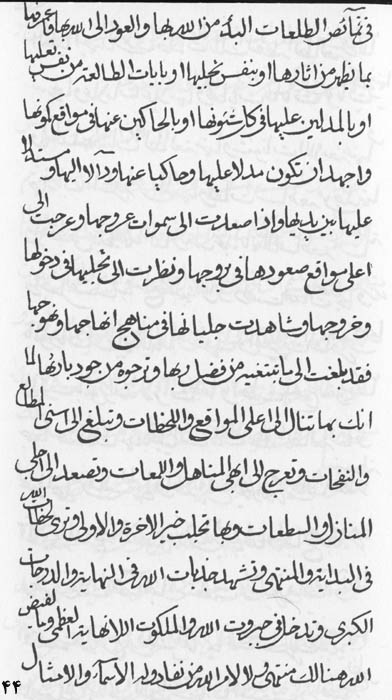 في نمآئص الطلعات البدء من الله بها و العود الى الله بها و عرفها
بما تظهر من اثارها او بنفس تجليها او بايات الطالعة من نفس تعليها
او بالمدلين عليها في كل شئونها او بالحاكين عنها في مواقع كونها
و اجهد ان تكون مدلا عليها و حاكيا عنها و دآلا اليها و
عليها بين يديها و اذا صعدت الى سموات عروجها و عرجت الى
اعلى مواقع صعودها في بروجها و نظرت الى تجليها في دخولها
و خروجها و شاهدت جليانها في مناهج ابتهاجها و
فقد بلغت الى ما تبتغيه من فضل ربها و ترجوه من جود بارئها لما
انك بها تنال الى اعلى المواقع و اللحظات و تبلغ الى اسنى المطالع
و النفحات و تعرج الى ابهى المناهل و اللمعات و تصعد الى اجلى
المنازل و السطعات و بها تجلب خير الاخرة و الاولى و ترى لحظات الله
في البداية و المنتهى و تشهد جذبات الله في النهاية و الدرجات
الكبرى و تدخل في جبروت الله و الملكوت اللانهاية العظمى و
الله هنالك منتهى و لا لامر الله من نفاد و له الاسمآء و الامثال
٤٤